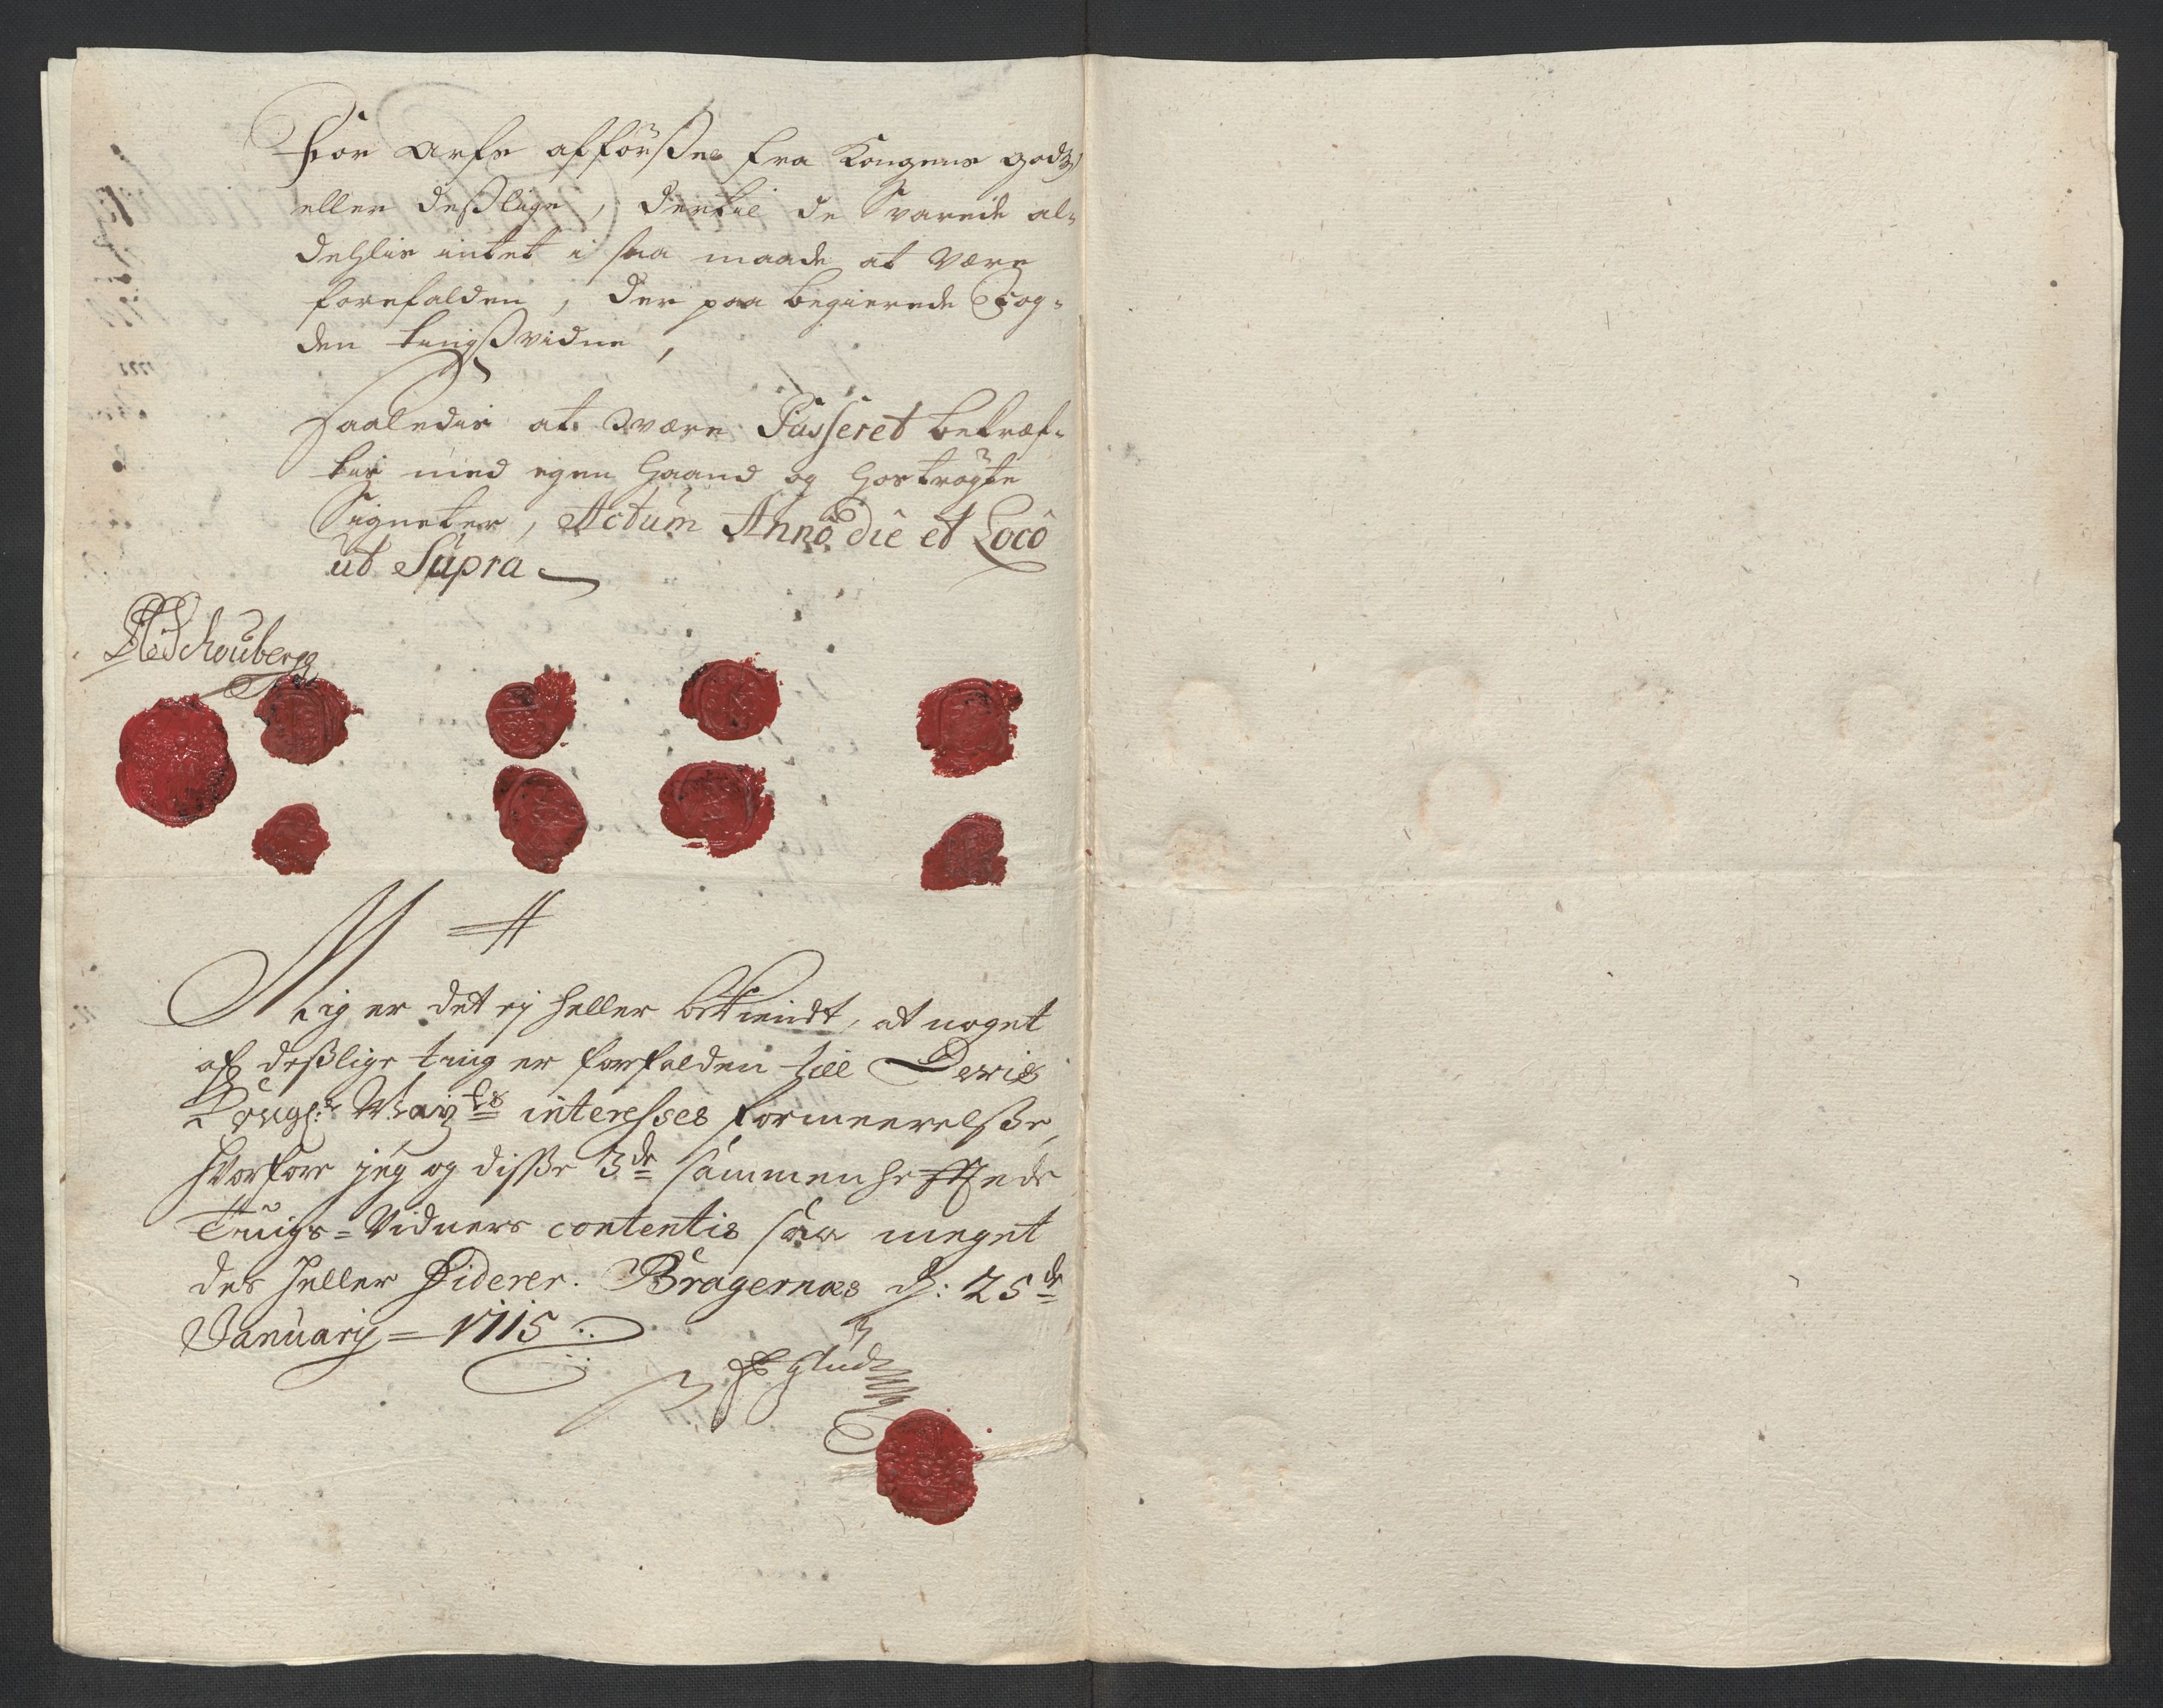 for Arfs afförßel fra Kongens godz
eller deßlige, dertil de Svarede al-
dehlis intet i saa maade at være
forefalden, der paa begierede Fog-
den tingßvidne,
Saaledis at være Passeret bekræf-
tes med egen Haand og hoströgte
Signeter, Actum Anno die et Loco
ut Supra
Schouberg
Mig er det ej heller bekiendt, at noget
af deßlige ting er forfalden till Deris
Kongl: May:ts interesses formeerelße,
hvorfore jeg og disße 3de sammenhefftede
Tings-Vidners contentis saa meget
des heller Siderer. Bragernæs d: 25de
January 1715
Glud